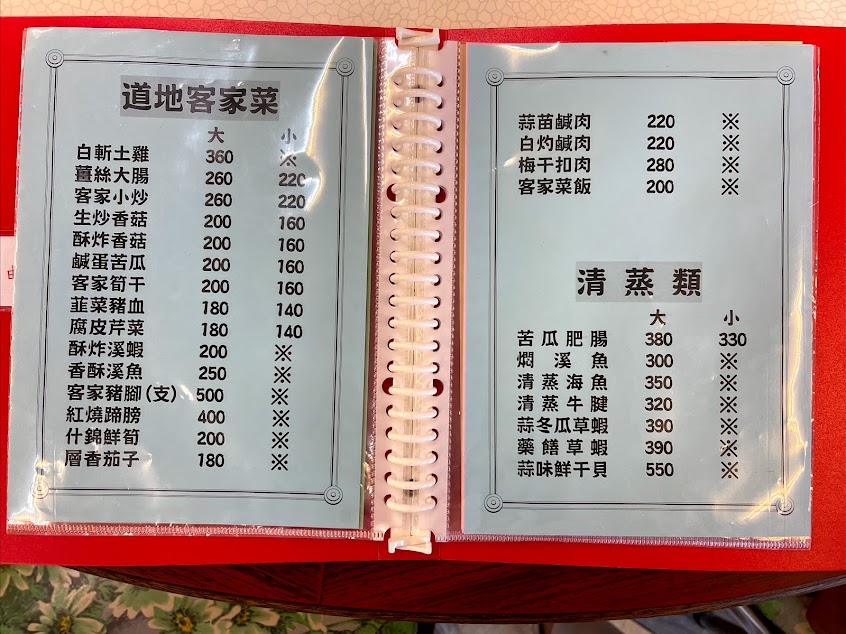 道地客家菜
大 小
白斬土雞 360 ※
薑絲大腸 260 220
客家小炒 260 220
生炒香菇 200 160
酥炸香菇 200 160
鹹蛋苦瓜 200 160
客家筍干 200 160
韮菜豬血 180 140
腐皮芹菜 180 140
酥炸溪蝦 200 ※
香酥溪魚 250 ※
客家豬腳(支) 500 ※
紅燒蹄膀 400 ※
什錦鮮筍 200 ※
層香茄子 180 ※
蒜苗鹹肉 220 ※
白灼鹹肉 220 ※
梅干扣肉 280 ※
客家菜飯 200 ※
清蒸類
大 小
苦瓜肥腸 380 330
燜溪魚 300 ※
清蒸海魚 350 ※
清蒸牛腱 320 ※
蒜冬瓜草蝦 390 ※
藥饍草蝦 390 ※
蒜味鮮干貝 550 ※